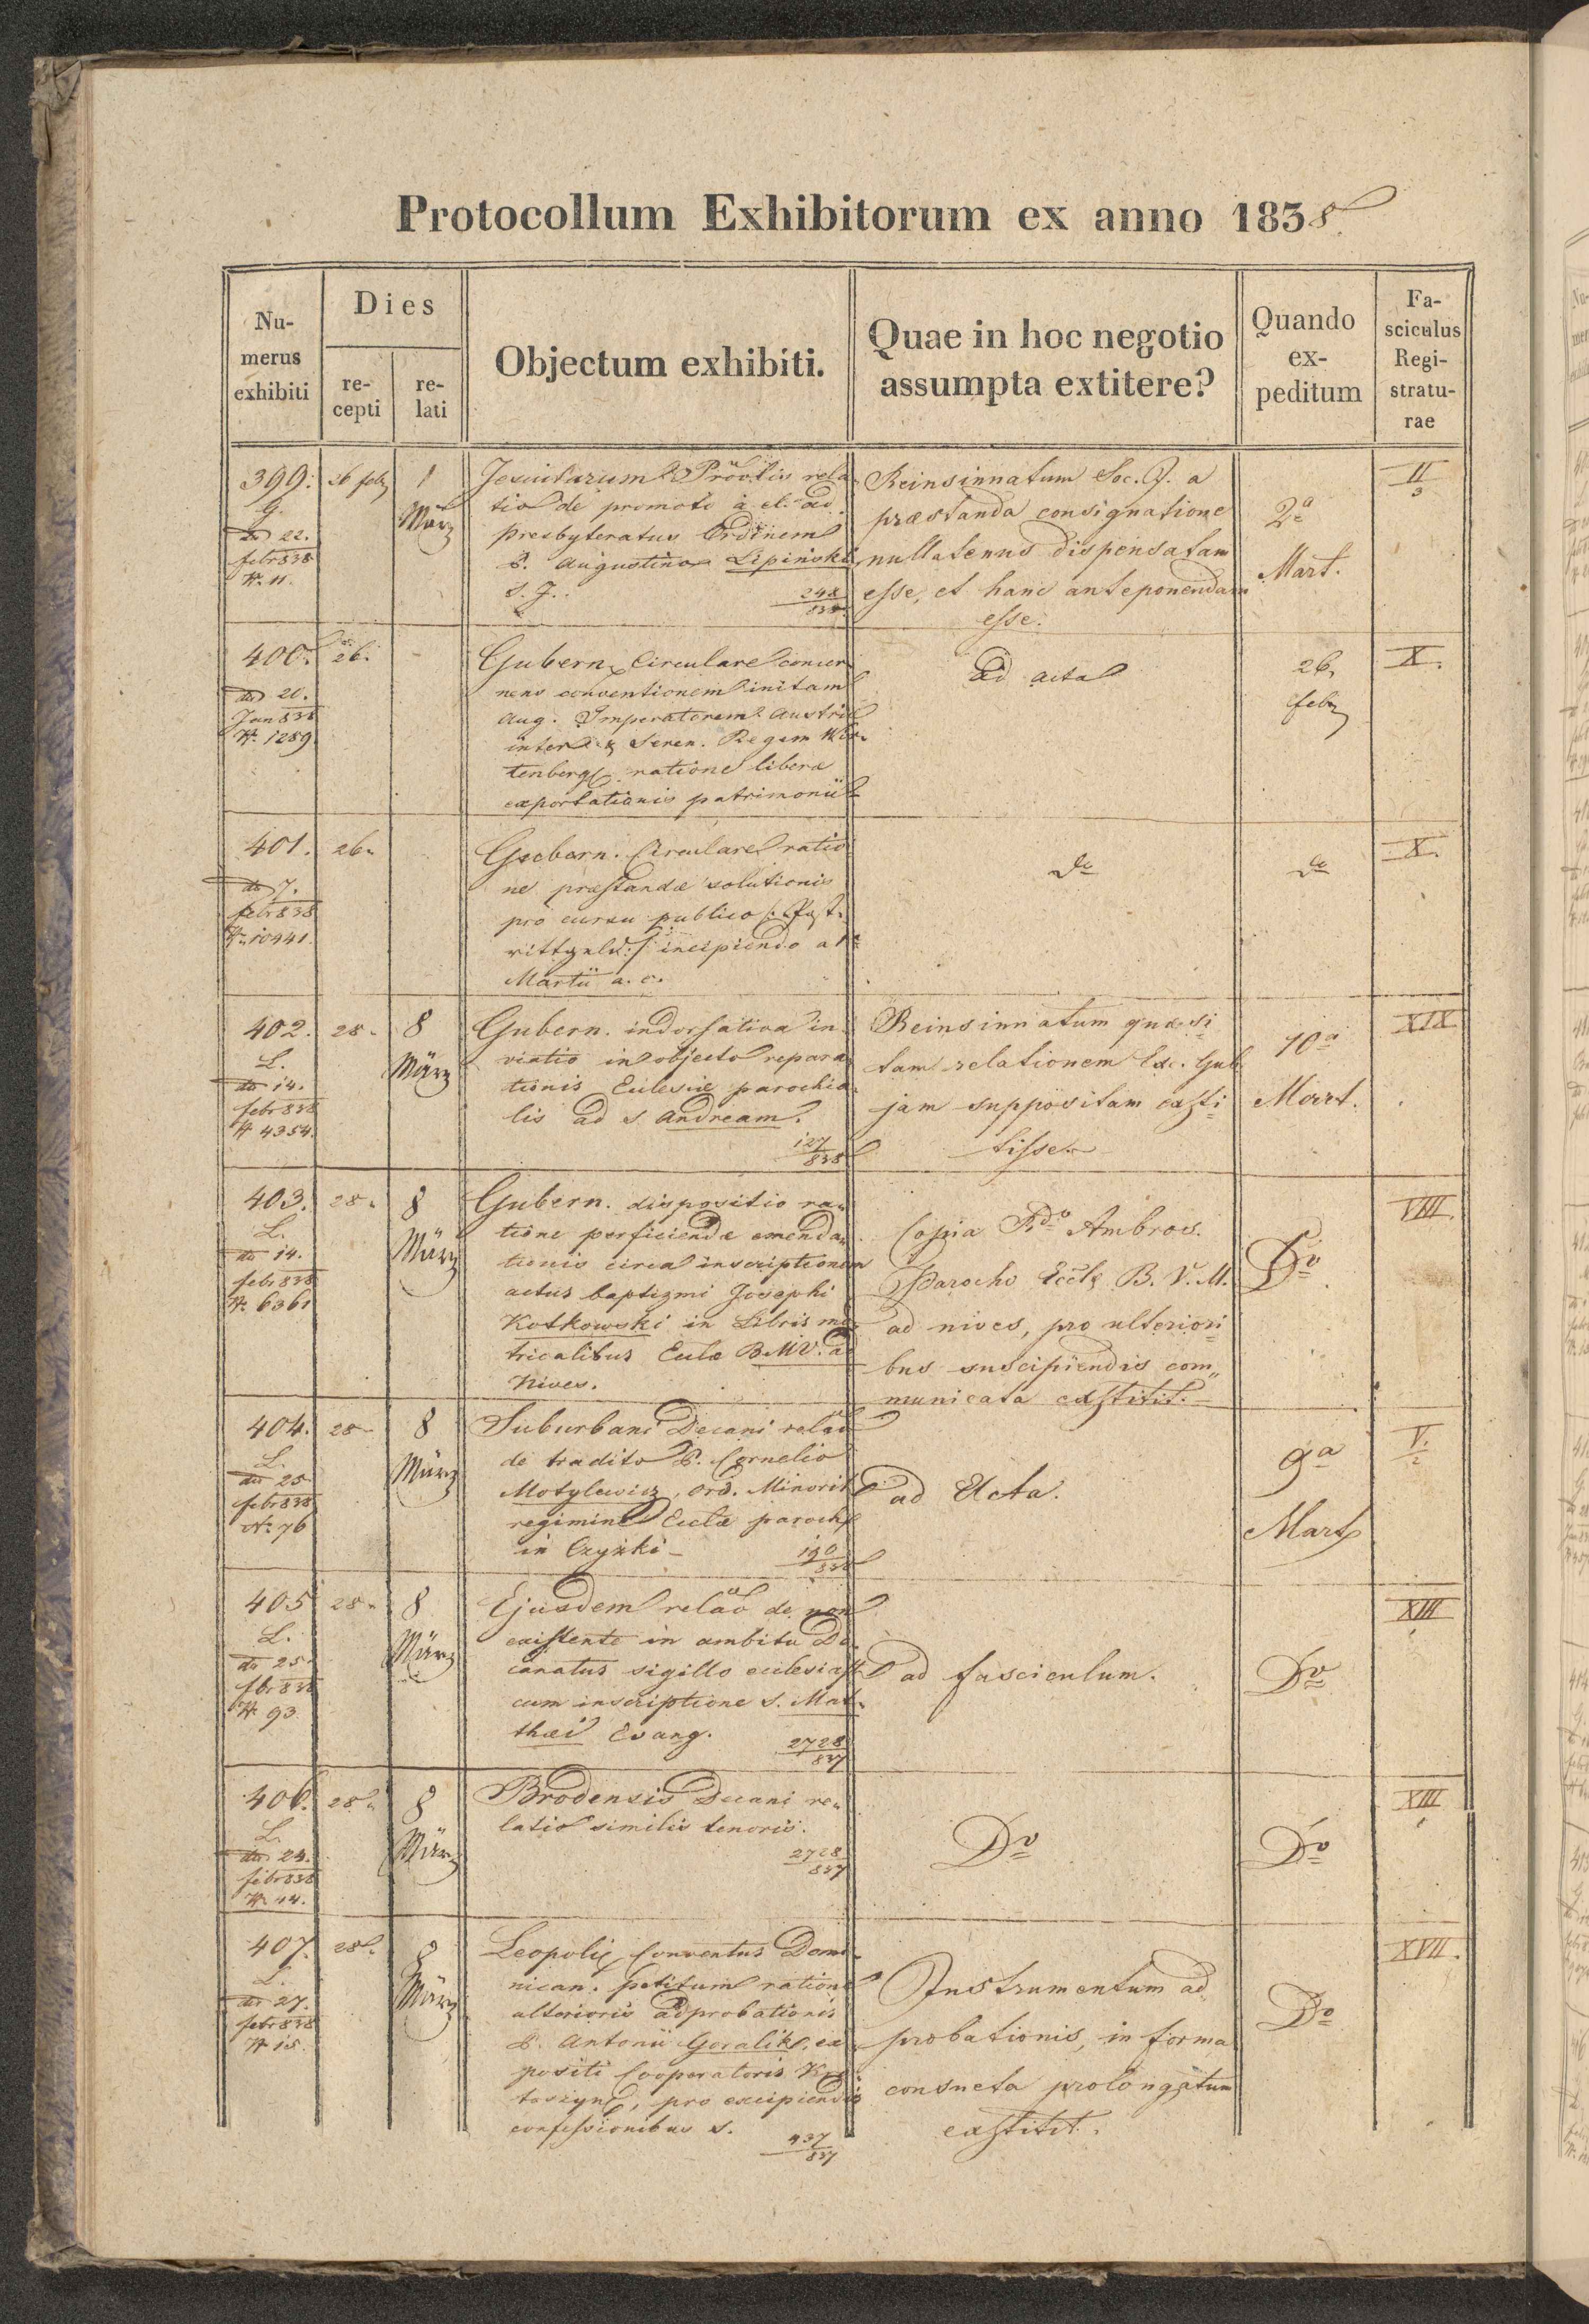 Protocollum Exhibitorum ex anno 1838
Nu-
merus
exhibiti
Dies
re-
cepti
re-
lati
Objectum exhibiti.
Quae in hoc negotio
assumpta extitere?
Quando
ex-
peditum
Fa-
sciculus
Regi-
stratu-
rae
399.
G.
dto 22.
febr 838
N. 11.
26 febr
1
März
Jesuitarum Provlis rela-
tio de promoto a el. ad
presbyteratus Ordinem
P. Augustino Lipinski
S. J.
248
838
Reinsinnatum Soc. J. a
præstanda consignatione
nullatenus dispensatam
esse, et hanc anteponendam
esse.
2a
Mart.
II
3
400.
dto 20.
Jan 838
N. 1289
26.
Gubern. Circulare concer-
nens conventionem initam
Aug. Imperatorem Austriæ
inter & Seren. Regem Wür-
tenberg ratione liberæ
exportationis patrimonii
ad acta
26
febr
X.
401.
dto 7.
febr 838
N. 10941.
26.
Gubern. Circulare ratio
ne præstandæ solutionis
pro cursu publico /: Post-
rittgeld :/ incipiendo a 1a
Martii a. c.
do
do
X.
402.
L.
dto 14.
febr 838
N 4354.
28.
8
März
Gubern. indorsativa in-
viatio in objecto repara-
tionis Eclesiæ parochia-
lis ad S Andream.
127
838
Reinsinnatum quæsi-
tam relationem Exc. Gub
jam suppositam exsti-
tisse.
10a
Mart.
XIX
403.
L.
dto 14.
febr 838
N. 6361
28.
8
März
Gubern. dispositio ra-
tione perficiendæ emenda-
tionis circa inscriptionem
actus baptizmi Josephi
Kotkowski in Libris ma-
tricalibus Eclæ B.M.V. ad
Nives.
Copia Rdo Ambros.
Parocho Eccle B. V. M.
ad nives, pro ulteriori-
bus suscipiendis com-
municata exstitit.
Do
VIII.
404.
L.
dto 25
febr 838
N. 76
28
8
März
Suburbani Decani relao
de tradito P. Cornelio
Motylewicz, Ord. Minorit
regimine Eclæ paroch
in Czyżki
190
838
ad Acta.
9a
Mart
V.
2
405
L.
dto 25
fbr 838
N. 93
28.
8
März
Ejusdem relao de non
existente in ambitu De-
canatus sigillo ecclesiast
cum inscriptione S. Mat-
thæi Evang.
2728
837
ad fasciculum.
Do
XIII
406.
L.
dto 24.
febr 838
N. 44.
28.
8
März
Brodensis Decani re-
latio similis tenoris.
2728
837
Do
Do
XIII
407.
L.
dto 27.
febr 838
N 15.
28.
8
März
Leopolis Conventus Domi-
nican. petitum ratione
alterioris adprobationis
P. Antonii Goralik, ex-
positi Cooperatoris
pro excipiendis
confessionibus s.
437
837
Instrumentum ad-
probationis, in forma
consueta prolongatum
exstitit.
Do
XVII.